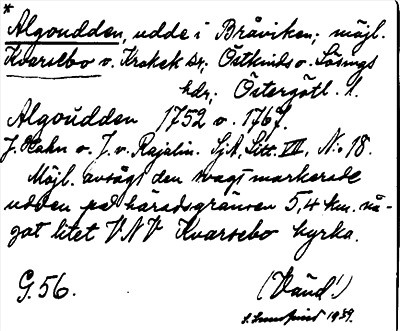 *
Algoudden, udde i Bråviken; möjl.
Kvarsebo o. Krokek sn; Östkinds o. Lösings
hdr; Östergötl. l.
Algoudden 1752 o. 1767.
J. Hahn o. J. v. Rajalin. SjA, Litt. VII, N:o 18.
Möjl. avsågs den svagt markerade
udden på häradsgränsen 5,4 km. nå-
got litet VNV Kvarsebo kyrka.
G. 56. (Vänd!)
1939.